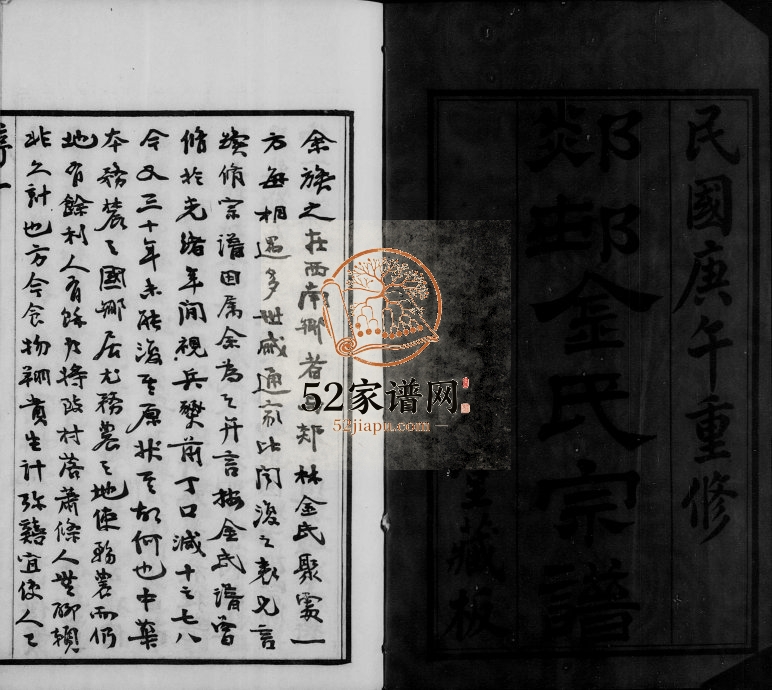 民國庚午重修
郯邨金氏宗譜
堂藏板
余族之在西南鄉者與郯林金氏聚處一
方每相遇多世戚通家比聞後之袁兄言
續修宗譜因屬余為之弁言按金氏譜曾
修於光緒年間視兵燹前丁口減十之七八
今又三十年未能復其原狀其故何也中葉
本務農之國鄉居尤務農之地使務農而仍
地有餘利人有餘力將改村落蕭條人無聊賴
非久計也方今食物翔貴生計弥囏宜使人之
序一
52家谱网
52jiapu.com